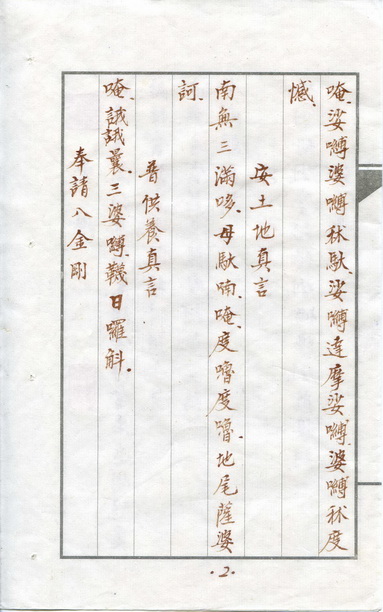 唵.娑嚩婆嚩秫馱.娑嚩達摩娑嚩.婆嚩秫度
憾.
安土地真言
南無三滿哆.母馱喃.唵.度嚕度嚕.地尾薩婆
訶.
普供養真言
唵.誐誐曩.三婆嚩.韈日囉斛.
奉請八金剛
·2·